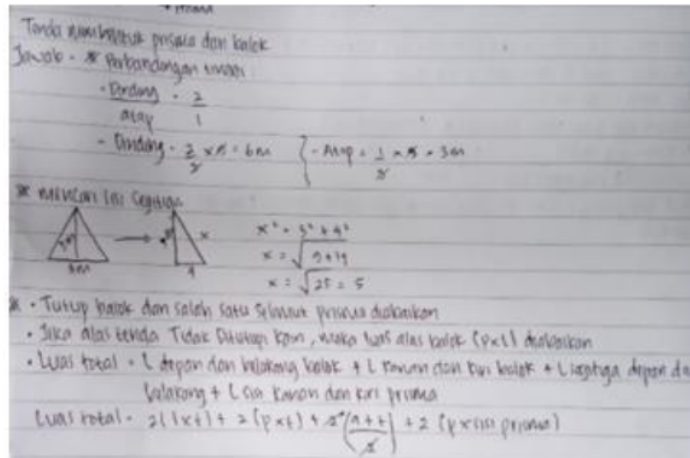 Tenda membentuk prisma dan balok
Jawab - * Perbandingan tinggi
- Dinding = 2
atap 1
- Dinding = 2/3 x 9 = 6m - Atap = 1/3 x 9 = 3m
* mencari sisi segitiga
3m x
8m 4
x² = 3² + 4²
x = √9+19
x = √25 = 5
* • Tutup balok dan salah satu selimut prisma diabaikan
• Jika alas tenda Tidak Ditutupi kain, maka luas alas balok (pxl) diabaikan
• Luas total = L depan dan belakang balok + L kanan dan kiri balok + L segitiga depan da
belakang + L sisi kanan dan kiri prisma
Luas total = 2(lxt) + 2(pxt) + 2(a+t/2) + 2(p x sisi prisma)